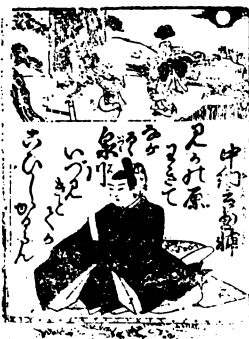 中納言兼輔
みかの原
わきて
なが
るゝ
泉川
いづ見
きとてか
こひしかるらん